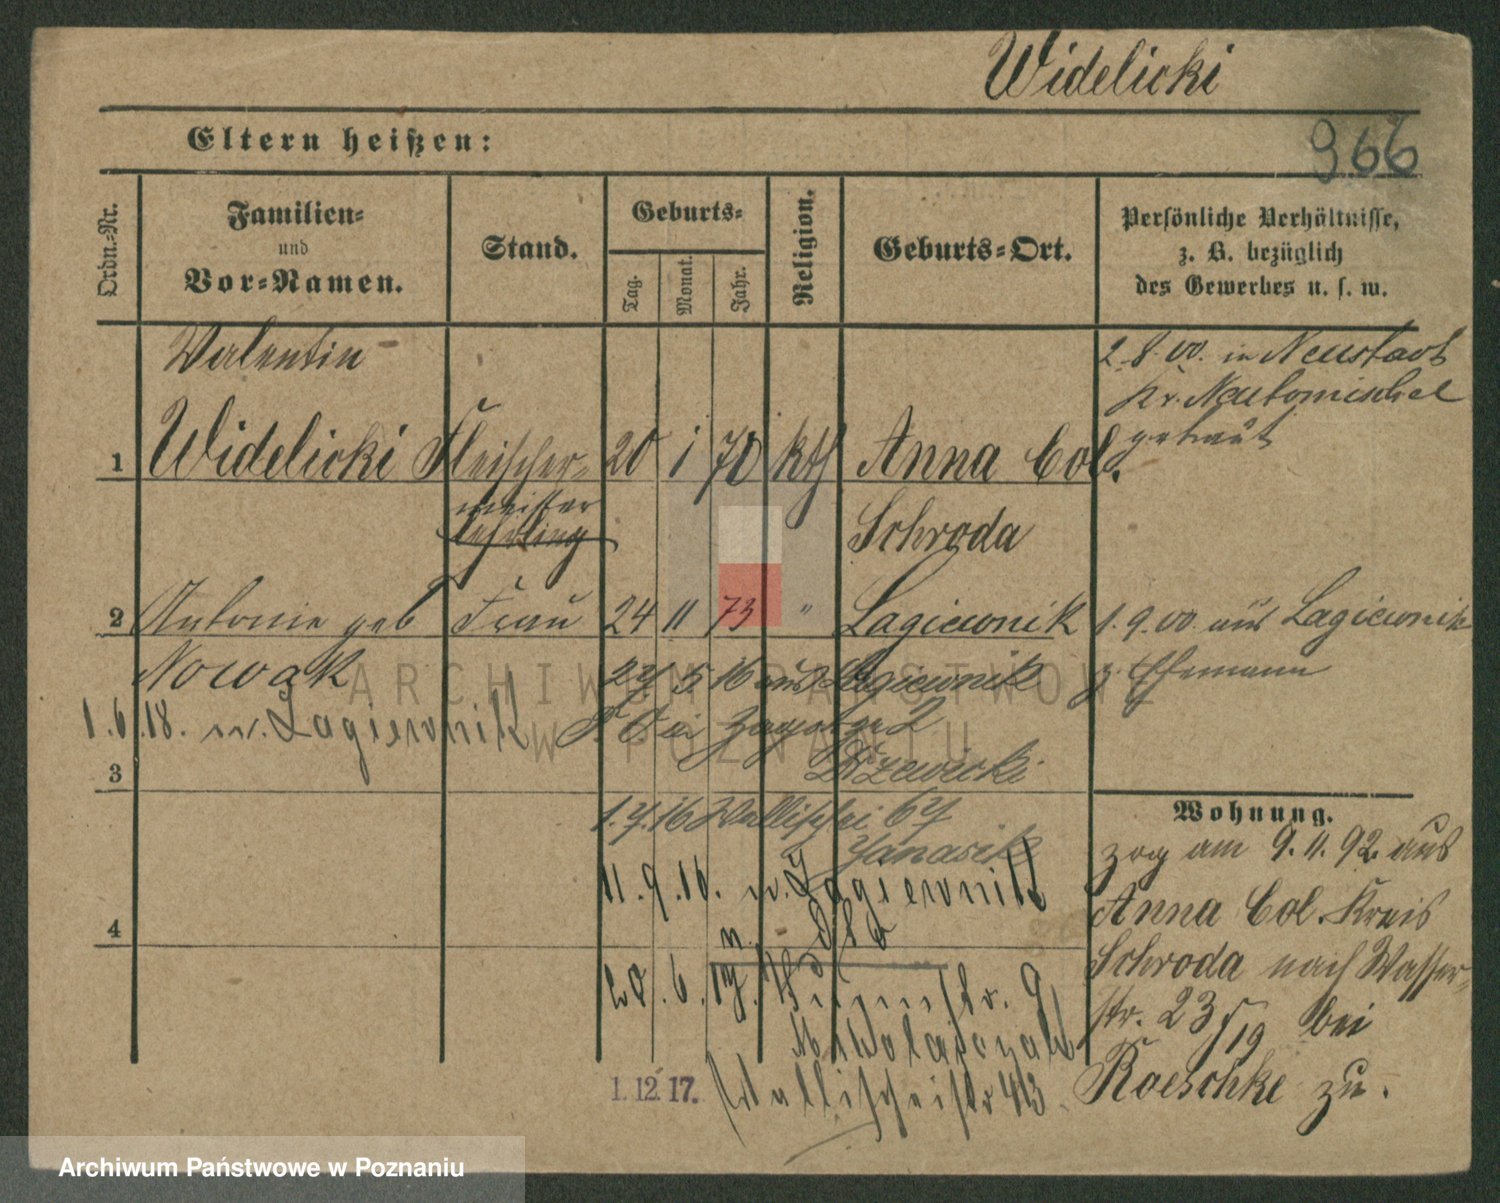 Widelicki
966
Eltern heißen:
Ordn.-Nr.
Familien- und Vor-Namen.
Stand.
Geburts-
Tag.
Monat.
Jahr.
Religion.
Geburts-Ort.
Persönliche Verhältnisse,
z. B. bezüglich
des Gewerbes u. s. w.
Valentin
2.8.00. in Neustadt
Kr. Neutomischel
getraut
1 Widelicki Fleischer- 20 1 70 kth Anna Col.
meister
lehrling
Schroda
2 Antonie geb Frau 24 11 73 " Lagiewnik 1.9.00 aus Lagiewnik
Nowak 27 5 16 aus Lagiewnik z. Ehemann
1.6.18. n. Lagiewnik
3
Wohnung.
1.7.16 Wallischei 67
Janasik
zog am 9.11.92 aus
11.9.16. n. Lagiewnik
Anna Col. Kreis
4
Schroda nach Wasser-
20.6.17.
str. 23/19 bei
Raeschke zu.
1.12.17. Wallischeistr 43
ARCHIWUM PAŃSTWOWE
W POZNANIU
Archiwum Państwowe w Poznaniu